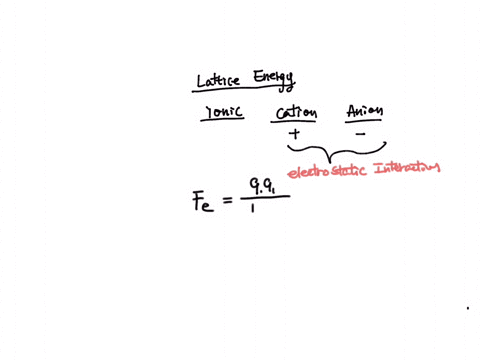 Lattice Energy
Ionic Cation Anion
+ -
electrostatic Interactions
Fe = q.q,